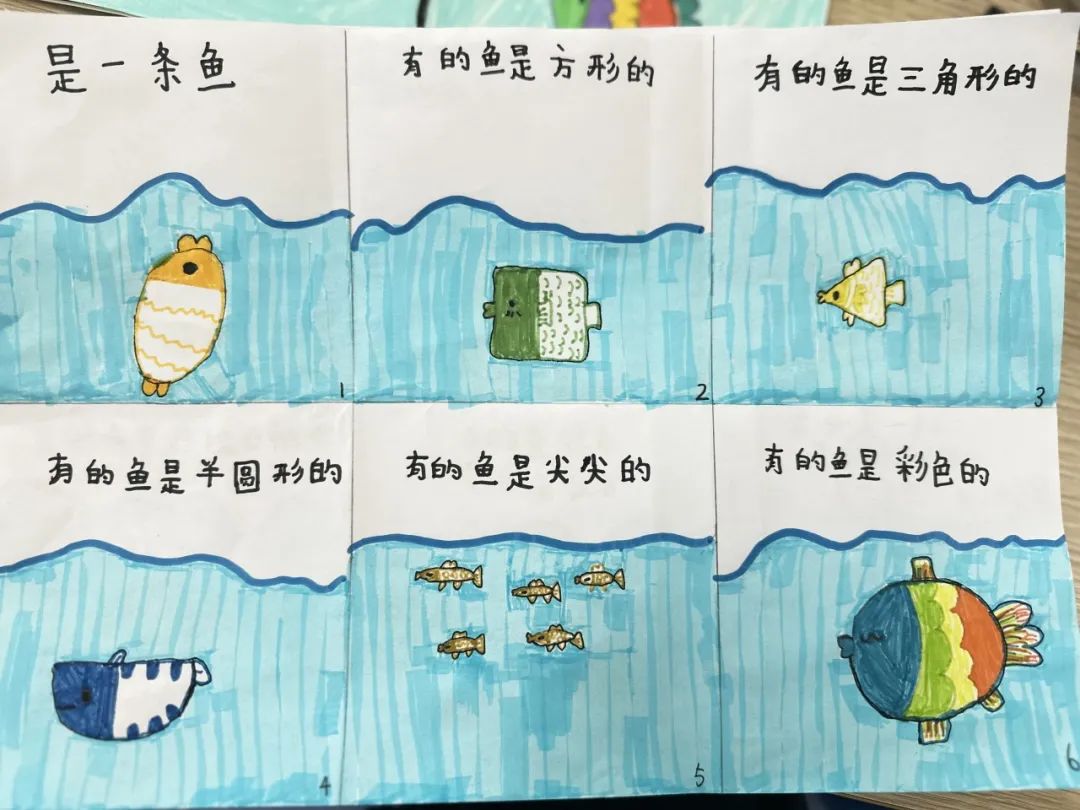 是一条鱼
1
有的鱼是方形的
2
有的鱼是三角形的
3
有的鱼是半圆形的
4
有的鱼是尖尖的
5
有的鱼是彩色的
6